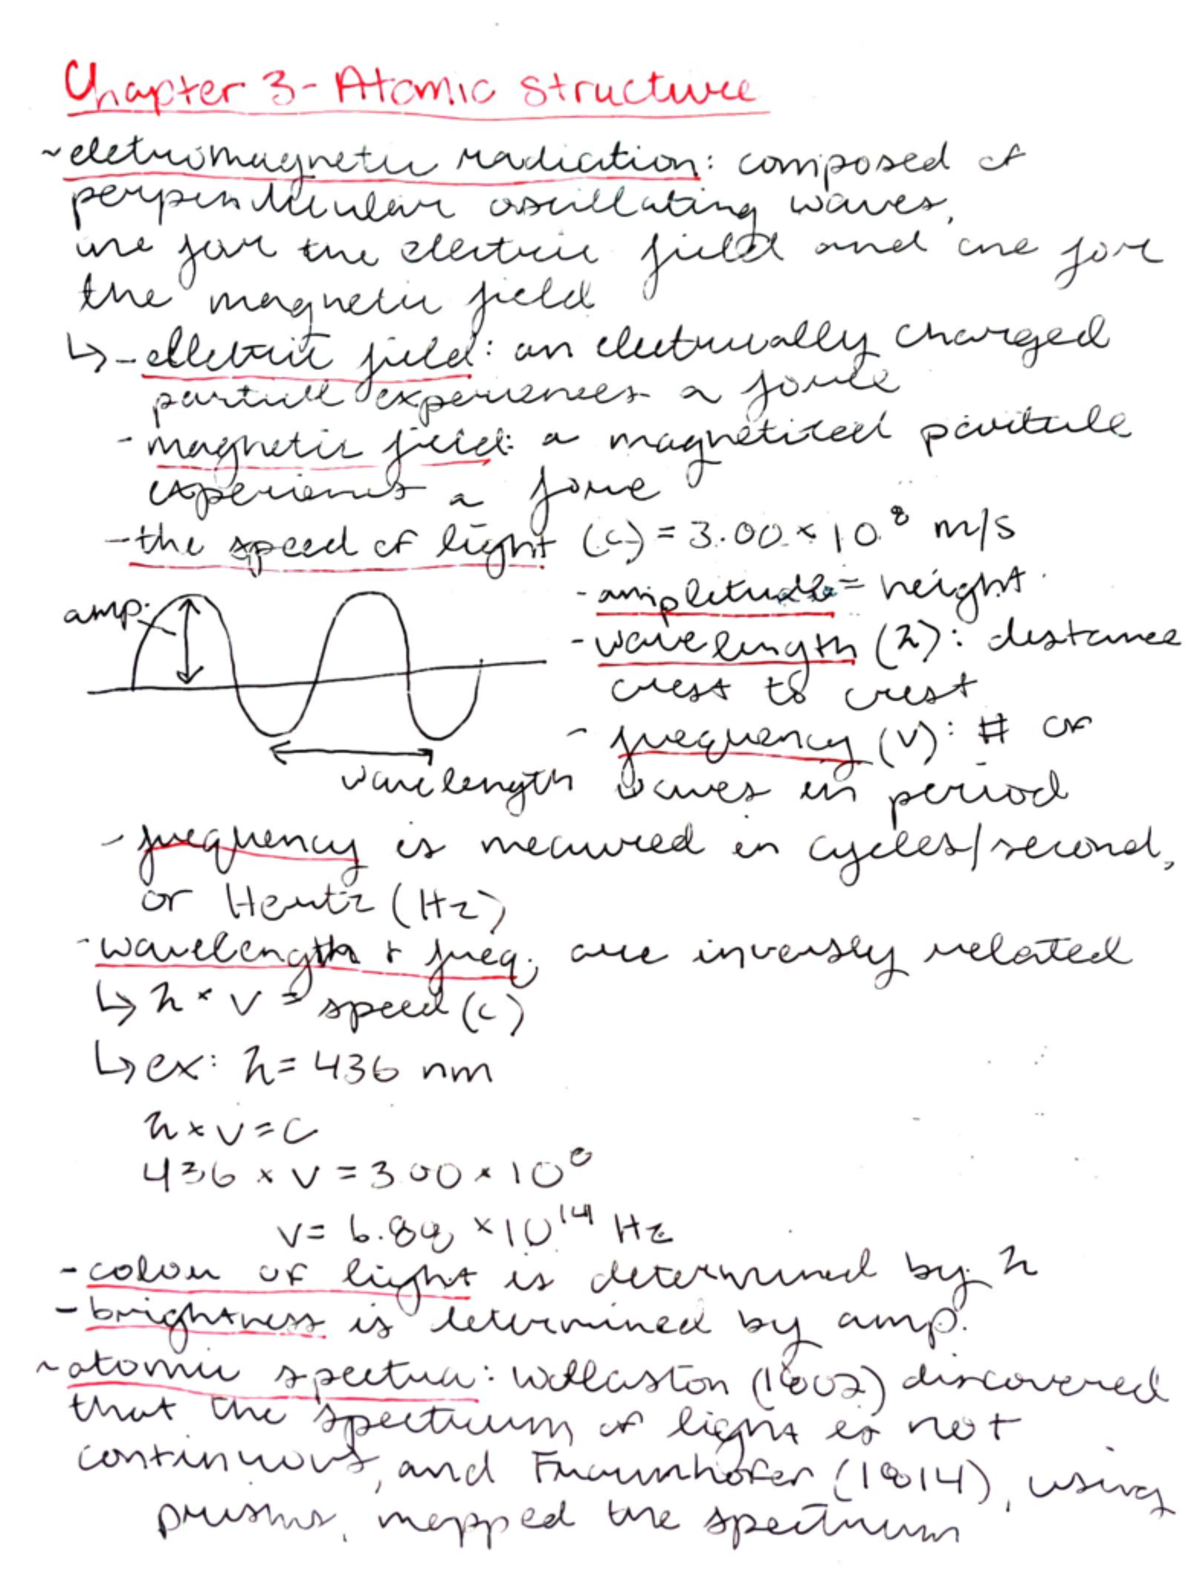 Chapter 3 - Atomic Structure
~ eletromagnetic radiation: composed of
perpendicular oscillating waves,
one for the electric field and one for
the magnetic field
↳ - electric field: an electrically charged
particle experiences a force
- magnetic field: a magnetized particle
experiences a force
- the speed of light (c) = 3.00 × 10⁸ m/s
amp.
- amplitude = height
- wavelength (λ): distance
crest to crest
- frequency (ν): # of
waves in period
wavelength
- frequency is measured in cycles/second,
or Hertz (Hz)
- wavelength & freq. are inversly related
↳ λ × ν = speed (c)
↳ ex: λ = 436 nm
λ × ν = c
436 × ν = 3.00 × 10⁸
ν = 6.88 × 10¹⁴ Hz
- colour of light is determined by λ
- brightness is determined by amp.
~ atomic spectra: Wollaston (1802) discovered
that the spectrum of light is not
continuous, and Fraunhofer (1814), using
prisms, mapped the spectrum